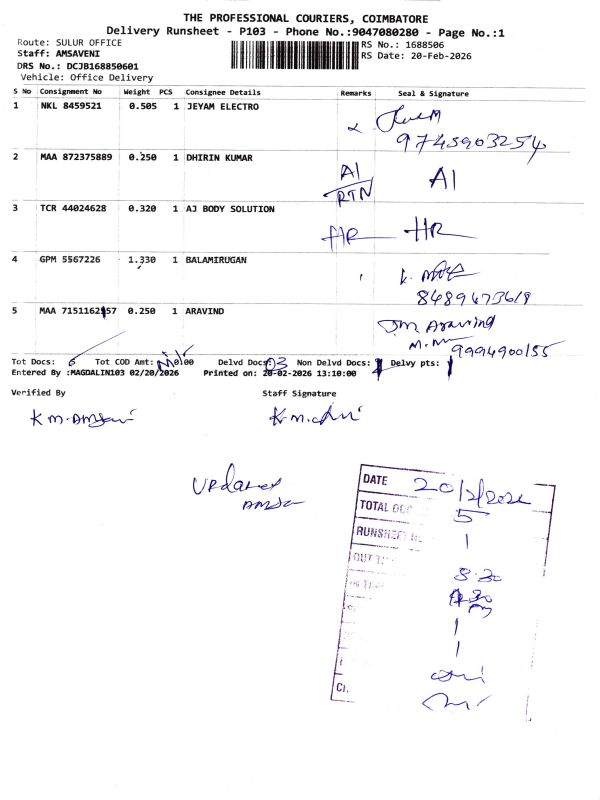 THE PROFESSIONAL COURIERS, COIMBATORE
Delivery Runsheet - P103 - Phone No.:9047080280 - Page No.:1
Route: SULUR OFFICE
Staff: AMSAVENI
DRS No.: DCJB168850601
Vehicle: Office Delivery
RS No.: 1688506
RS Date: 20-Feb-2026
S No Consignment No Weight PCS Consignee Details Remarks Seal & Signature
1 NKL 8459521 0.505 1 JEYAM ELECTRO
9745903254
2 MAA 872375889 0.250 1 DHIRIN KUMAR
AI
RTN
AI
3 TCR 44024628 0.320 1 AJ BODY SOLUTION
HR HR
4 GPM 5567226 1.330 1 BALAMIRUGAN
8489473619
5 MAA 7151162 57 0.250 1 ARAVIND
Aravind
9994900155
Tot Docs: Tot COD Amt: 0.00 Delvd Docs: 03 Non Delvd Docs: Delvy pts:
Entered By :MAGDALIN103 02/20/2026 Printed on: 20-02-2026 13:10:00
Verified By Staff Signature
K.M.
K.M.
Updated
DATE 20/2/2026
TOTAL 5
RUNSHEET 1
OUT 8.30
1
1